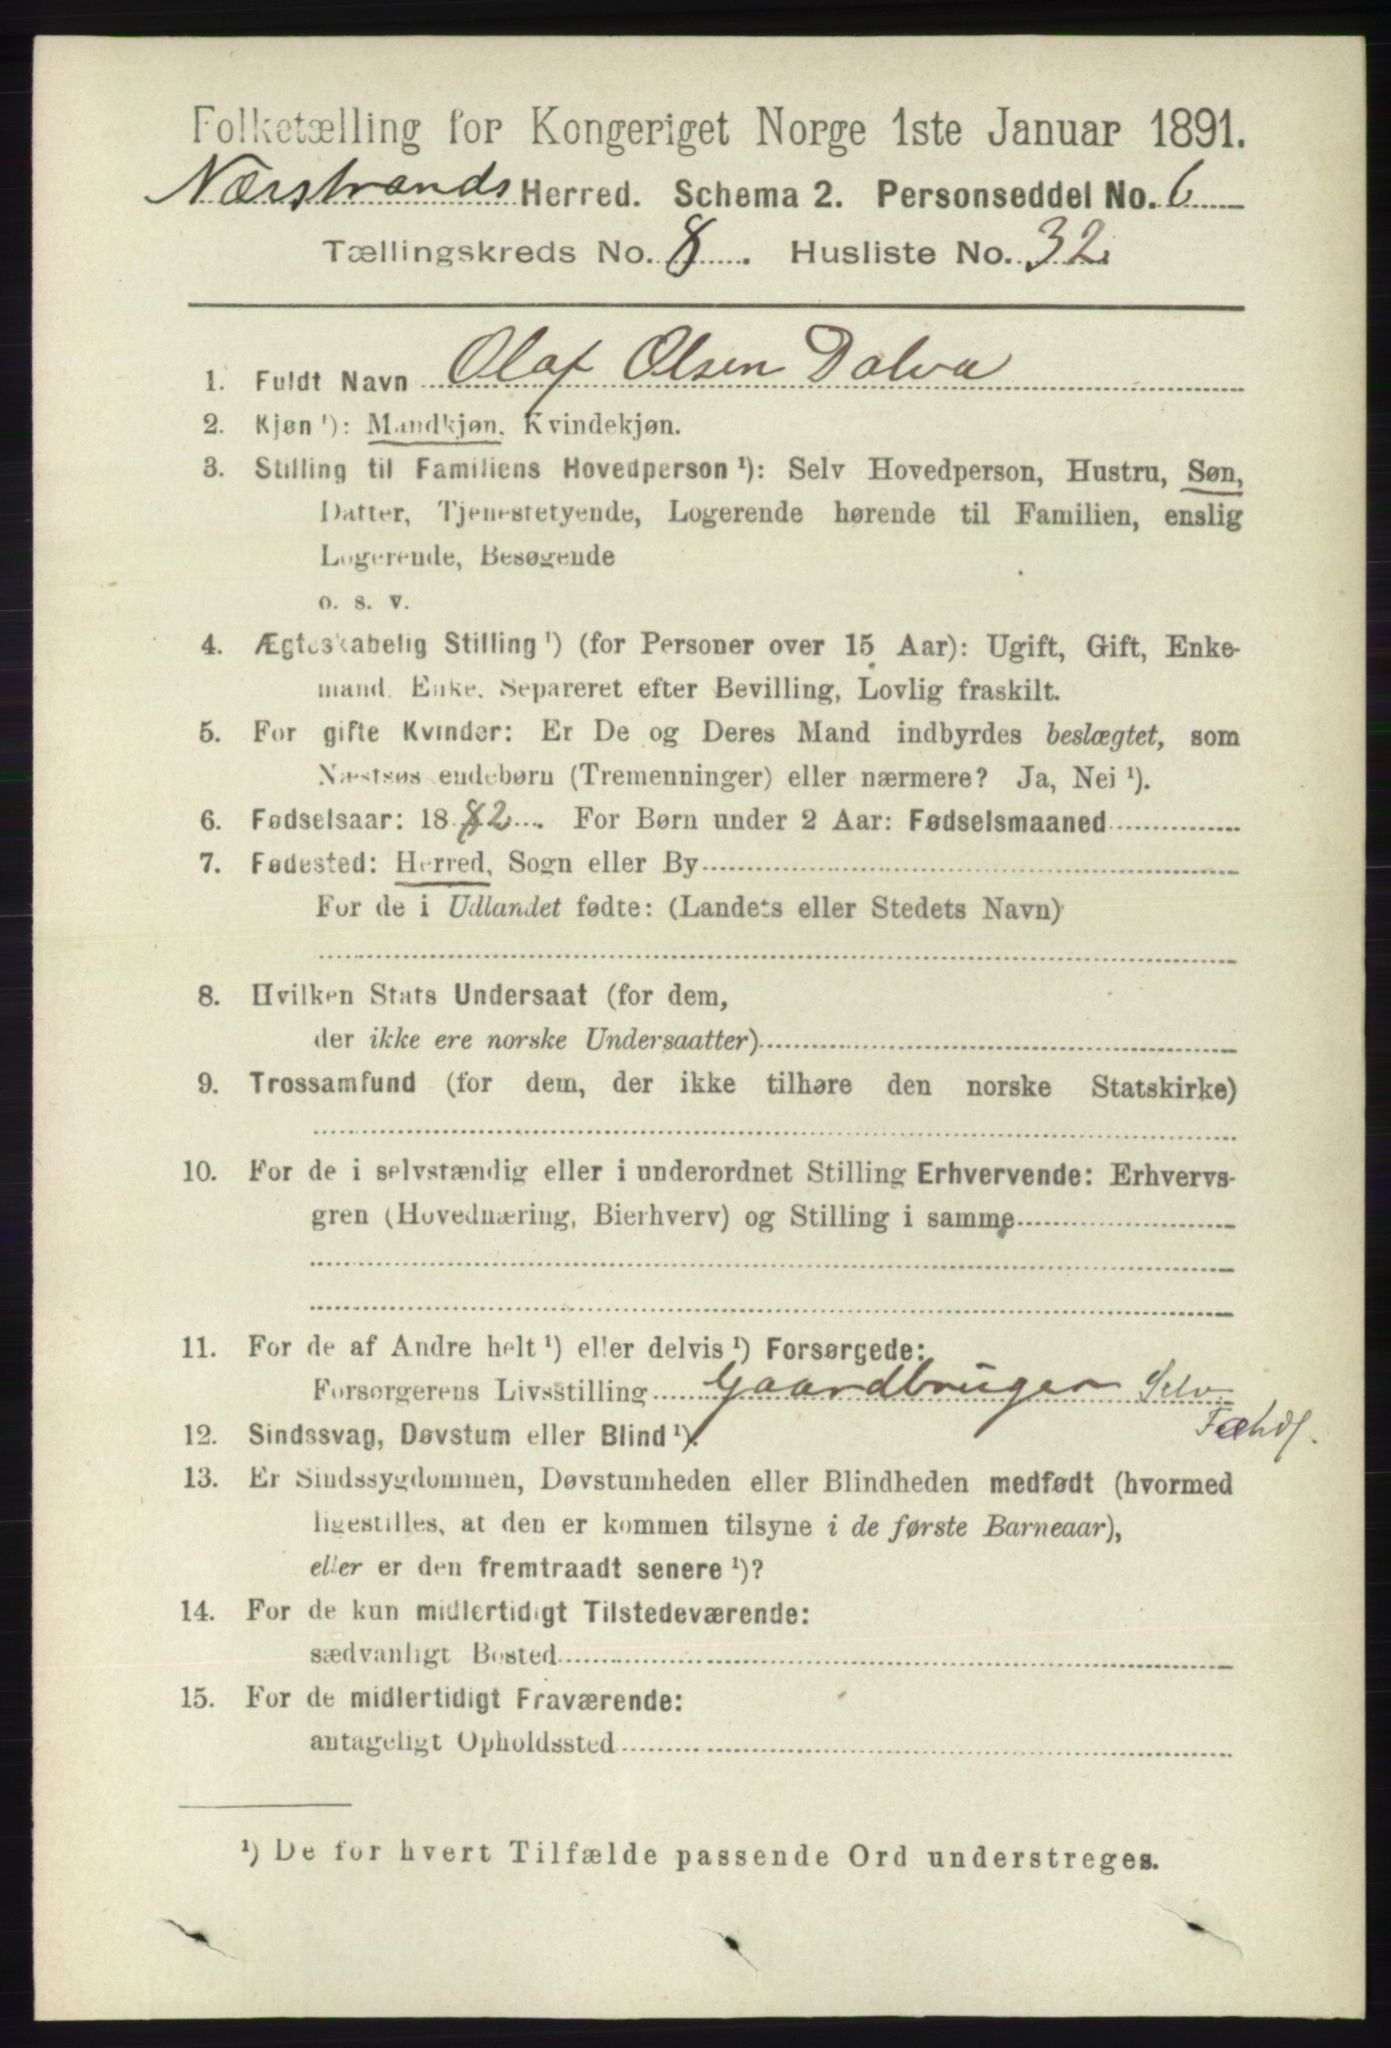 Folketælling for Kongeriget Norge 1ste Januar 1891.
Nærstrands Herred. Schema 2. Personseddel No. 6
Tællingskreds No. 8. Husliste No. 32
1. Fuldt Navn Olaf Olsen Dalva
2. Kjøn ¹): Mandkjøn. Kvindekjøn.
3. Stilling til Familiens Hovedperson ¹): Selv Hovedperson, Hustru, Søn,
Datter, Tjenestetyende, Logerende hørende til Familien, enslig
Logerende, Besøgende
o. s. v.
4. Ægteskabelig Stilling ¹) (for Personer over 15 Aar): Ugift, Gift, Enke-
mand, Enke, Separeret efter Bevilling, Lovlig fraskilt.
5. For gifte Kvinder: Er De og Deres Mand indbyrdes beslægtet, som
Næstsøskendebørn (Tremenninger) eller nærmere? Ja, Nei ¹).
6. Fødselsaar: 1882. For Børn under 2 Aar: Fødselsmaaned
7. Fødested: Herred, Sogn eller By
For de i Udlandet fødte: (Landets eller Stedets Navn)
8. Hvilken Stats Undersaat (for dem,
der ikke ere norske Undersaatter)
9. Trossamfund (for dem, der ikke tilhøre den norske Statskirke)
10. For de i selvstændig eller i underordnet Stilling Erhvervende: Erhvervs-
gren (Hovednæring, Bierhverv) og Stilling i samme
11. For de af Andre helt ¹) eller delvis ¹) Forsørgede:
Forsørgerens Livsstilling Gaardbruger Selv
12. Sindssvag, Døvstum eller Blind ¹).
13. Er Sindssygdommen, Døvstumheden eller Blindheden medfødt (hvormed
ligestilles, at den er kommen tilsyne i de første Barneaar),
eller er den fremtraadt senere ¹)?
14. For de kun midlertidigt Tilstedeværende:
sædvanligt Bosted
15. For de midlertidigt Fraværende:
antageligt Opholdssted
¹) De for hvert Tilfælde passende Ord understreges.